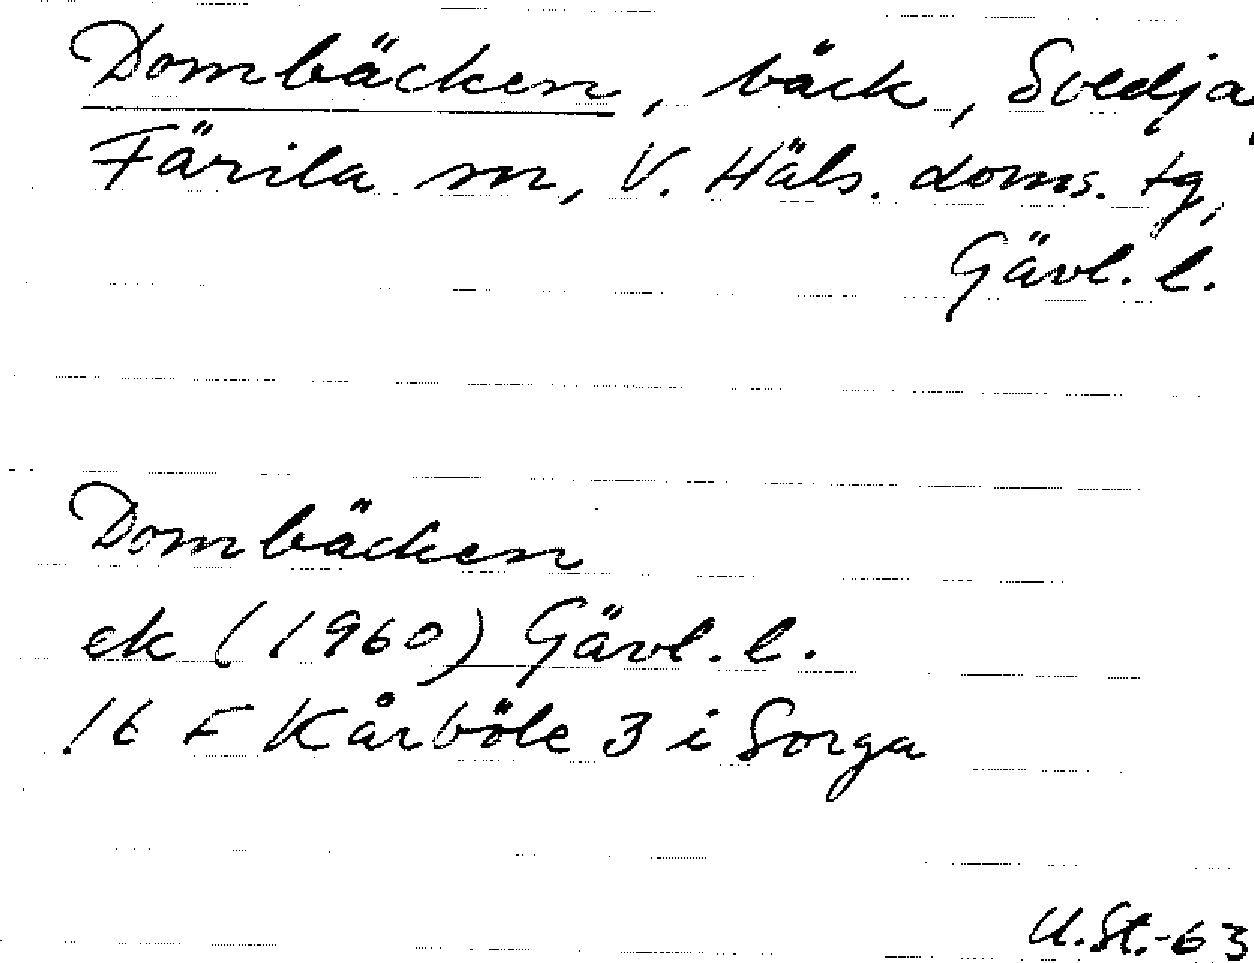 Dombäcken, bäck, Svedja,
Färila sn, V. Häls. doms. tg,
Gävl. l.
Dombäcken
ek (1960) Gävl. l.
16 F Kårböle 3 i Sorga
U.St.-63